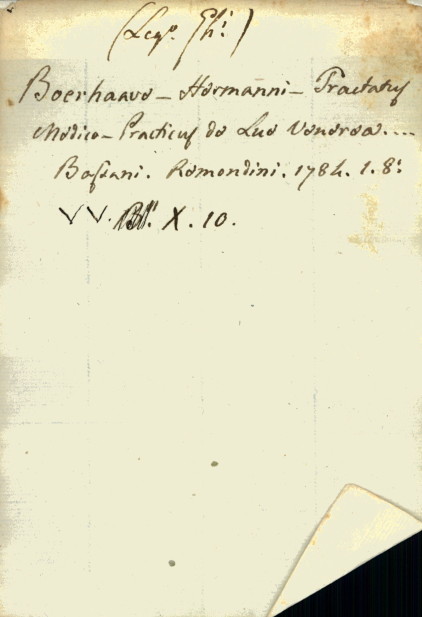 (Legº. Ghⁱ.)
Boerhaave - Hermanni - Tractatus
Medico-Practicus de Lue Venerea....
Bassani. Remondini. 1784. 1. 8º.
VV. X. 10.